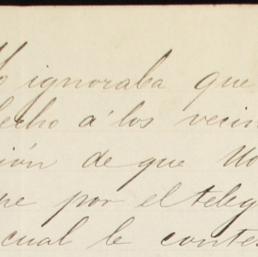 ignoraba que
echo á los vecin
ión de que
ne por el teleg
cual le contes